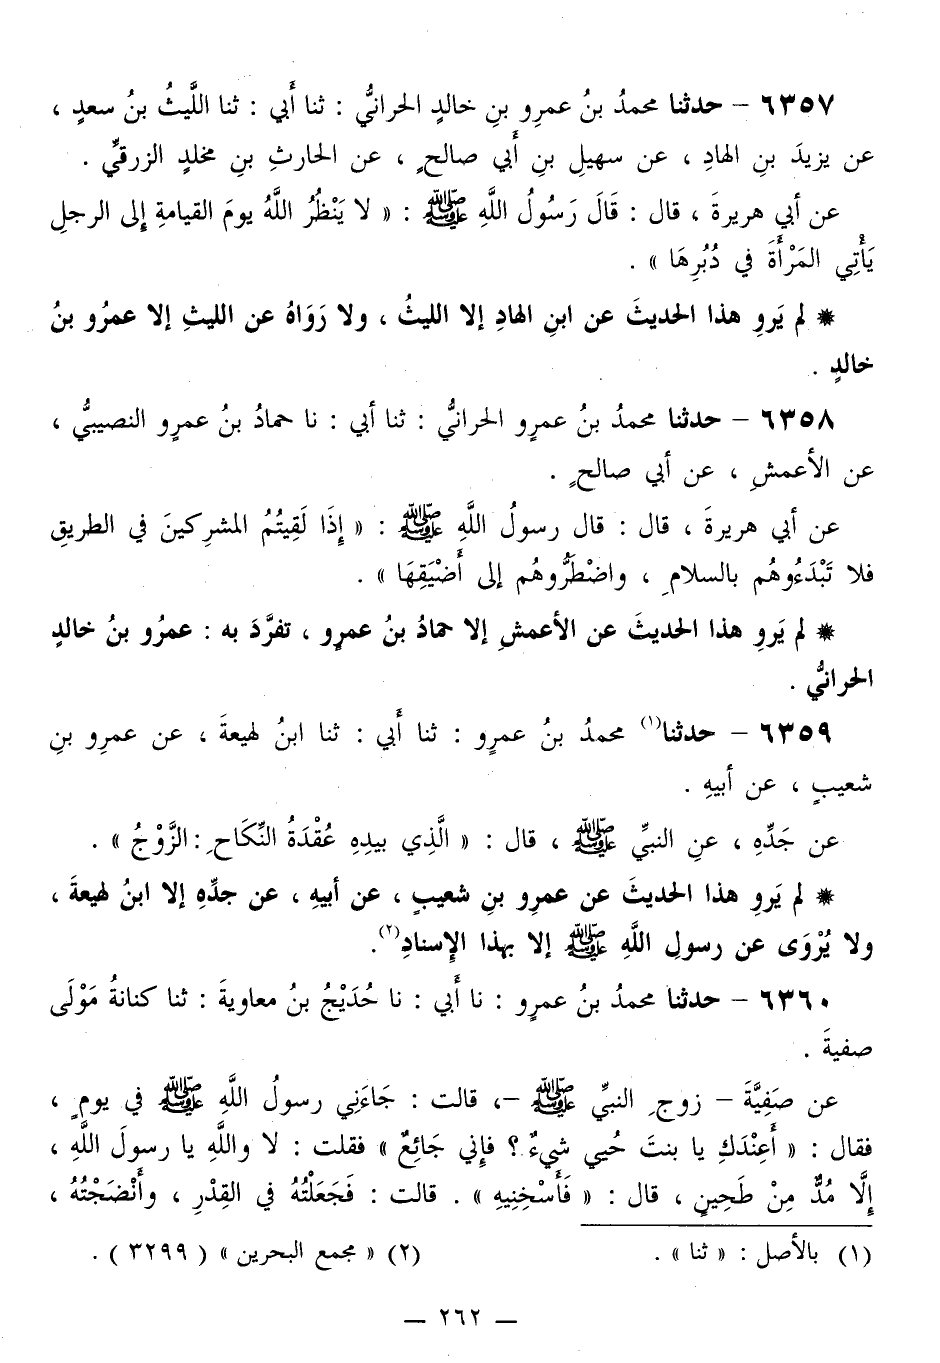 ٦٣٥٧ – حدثنا محمدُ بنُ عمرِو بنِ خالدٍ الحرانيُّ : ثنا أَبي : ثنا اللَّيثُ بنُ سعدٍ ،
عن يزيدَ بنِ الهادِ ، عن سهيلِ بنِ أَبي صالحٍ ، عن الحارثِ بنِ مخلدٍ الزرقيِّ .
عن أبي هريرةَ ، قال : قَالَ رَسُولُ اللَّهِ ﷺ : « لا يَنْظُرُ اللَّهُ يومَ القيامةِ إِلى الرجلِ
يَأْتِي المَرْأَةَ في دُبُرِهَا » .
* لم يَروِ هذا الحديثَ عن ابنِ الهادِ إلا الليثُ ، ولا رَوَاهُ عن الليثِ إلا عمرُو بنُ
خالدٍ .
٦٣٥٨ – حدثنا محمدُ بنُ عمرٍو الحرانيُّ : ثنا أبي : نا حمادُ بنُ عمرٍو النصيبيُّ ،
عن الأعمشِ ، عن أبي صالحٍ .
عن أبي هريرةَ ، قال : قال رسولُ اللَّهِ ﷺ : « إِذَا لَقِيتُمُ المشرِكينَ في الطريقِ
فلا تَبْدَءُوهُم بالسلامِ ، واضْطَرُّوهُم إلى أَضْيَقِهَا » .
* لم يَروِ هذا الحديثَ عن الأعمشِ إلا حمادُ بنُ عمرٍو ، تفرَّدَ به : عمرُو بنُ خالدٍ
الحرانيُّ .
٦٣٥٩ – حدثنا(١) محمدُ بنُ عمرٍو : ثنا أَبي : ثنا ابنُ لهيعةَ ، عن عمرِو بنِ
شعيبٍ ، عن أبيهِ .
عن جَدِّهِ ، عنِ النبيِّ ﷺ ، قال : « الَّذِي بيدِهِ عُقْدَةُ النِّكَاحِ : الزَّوْجُ » .
* لم يَروِ هذا الحديثَ عن عمرِو بنِ شعيبٍ ، عن أبيهِ ، عن جدِّهِ إلا ابنُ لهيعةَ ،
ولا يُرْوَى عن رسولِ اللَّهِ ﷺ إلا بهذا الإِسنادِ(٢).
٦٣٦٠ – حدثنا محمدُ بنُ عمرٍو : نا أَبي : نا حُدَيْجُ بنُ معاويةَ : ثنا كنانةُ مَوْلَى
صفيةَ .
عن صَفِيَّةَ – زوجِ النبيِّ ﷺ –، قالت : جَاءَنِي رسولُ اللَّهِ ﷺ في يومٍ ،
فقال : « أَعِنْدَكِ يا بنتَ حُيي شيءٌ ؟ فإِني جَائِعٌ » فقلت : لا واللَّهِ يا رسولَ اللَّهِ ،
إِلَّا مُدٌّ مِنْ طَحِينٍ ، قال : « فَأَسْخِنِيهِ » . قالت : فَجَعَلْتُهُ في القِدْرِ ، وأَنْضَجْتُهُ ،
(١) بالأصل : « ثنا » .
(٢) « مجمع البحرين » ( ٣٢٩٩ ) .
— ٢٦٢ —